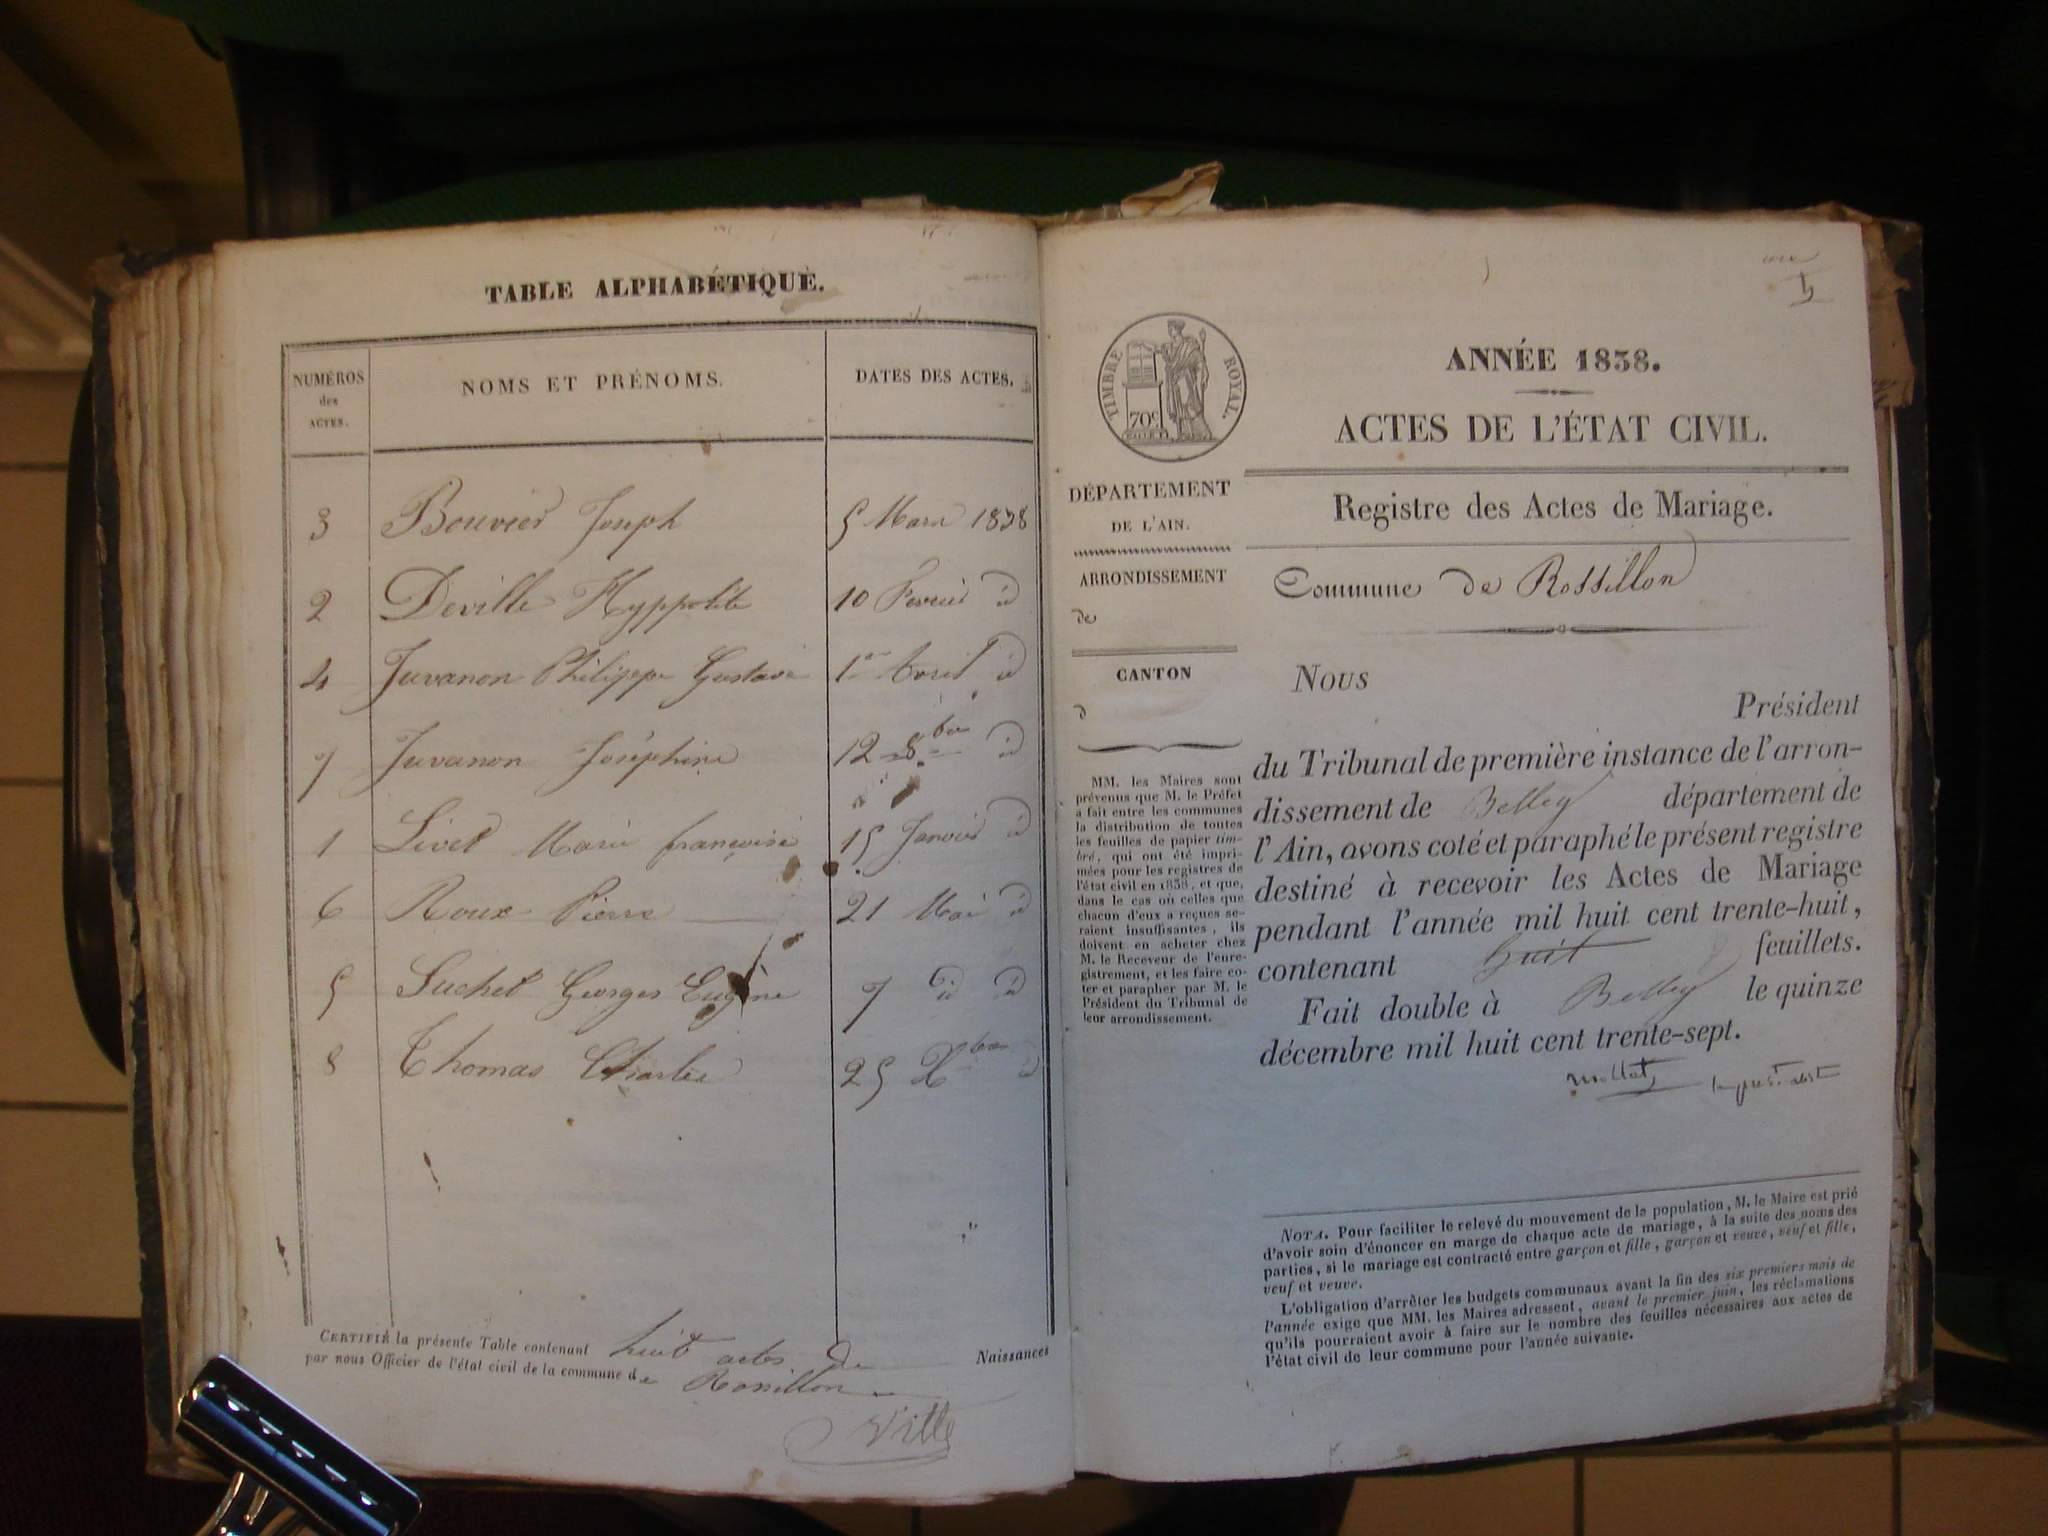 TABLE ALPHABÉTIQUE.
NUMÉROS des ACTES.
NOMS ET PRÉNOMS.
DATES DES ACTES.
3 Bouvier Joseph 5 Mars 1838
2 Deville Hyppolite 10 Fevrier id
4 Juvanon Philippe Gustave 1er Avril id
7 Juvanon Joséphine 12 8bre id
1 Livet Marie françoise 15 Janvier id
6 Roux Pierre 21 Mai id
5 Suchet Georges Eugène 7 id id
8 Thomas Charles 25 Xbre id
CERTIFIÉ la présente Table contenant huit actes de Naissances
par nous Officier de l'état civil de la commune de Rossillon
Ville
TIMBRE ROYAL.
70c
DÉPARTEMENT
DE L'AIN.
ARRONDISSEMENT
de
CANTON
d
MM. les Maires sont
prévenus que M. le Préfet
a fait entre les communes
la distribution de toutes
les feuilles de papier tim-
bré, qui ont été impri-
mées pour les registres de
l'état civil en 1838, et que,
dans le cas où celles que
chacun d'eux a reçues se-
raient insuffisantes, ils
doivent en acheter chez
M. le Receveur de l'enre-
gistrement, et les faire co-
ter et parapher par M. le
Président du Tribunal de
leur arrondissement.
ANNÉE 1838.
ACTES DE L'ÉTAT CIVIL.
Registre des Actes de Mariage.
Commune de Rossillon
Nous
Président
du Tribunal de première instance de l'arron-
dissement de Belley département de
l'Ain, avons coté et paraphé le présent registre
destiné à recevoir les Actes de Mariage
pendant l'année mil huit cent trente-huit,
contenant huit feuillets.
Fait double à Belley le quinze
décembre mil huit cent trente-sept.
NOTA. Pour faciliter le relevé du mouvement de la population, M. le Maire est prié
d'avoir soin d'énoncer en marge de chaque acte de mariage, à la suite des noms des
parties, si le mariage est contracté entre garçon et fille, garçon et veuve, veuf et fille,
veuf et veuve.
L'obligation d'arrêter les budgets communaux avant la fin des six premiers mois de
l'année exige que MM. les Maires adressent, avant le premier juin, les réclamations
qu'ils pourraient avoir à faire sur le nombre des feuilles nécessaires aux actes de
l'état civil de leur commune pour l'année suivante.